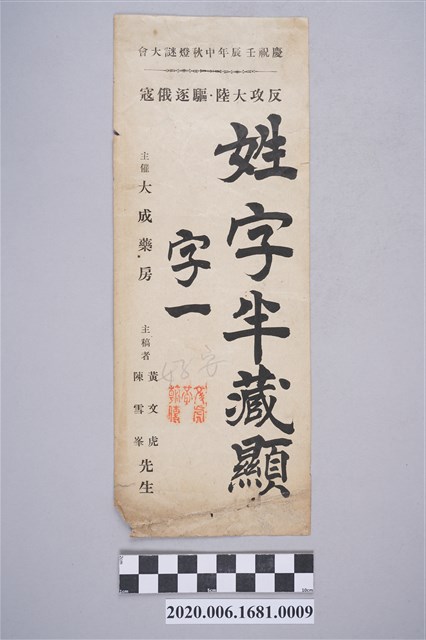 慶祝壬辰年中秋燈謎大會
反攻大陸·驅逐俄寇
姓字半藏顯
字一
主催 大成藥房
主稿者 黃文虎 陳雪峯 先生
2020.006.1681.0009